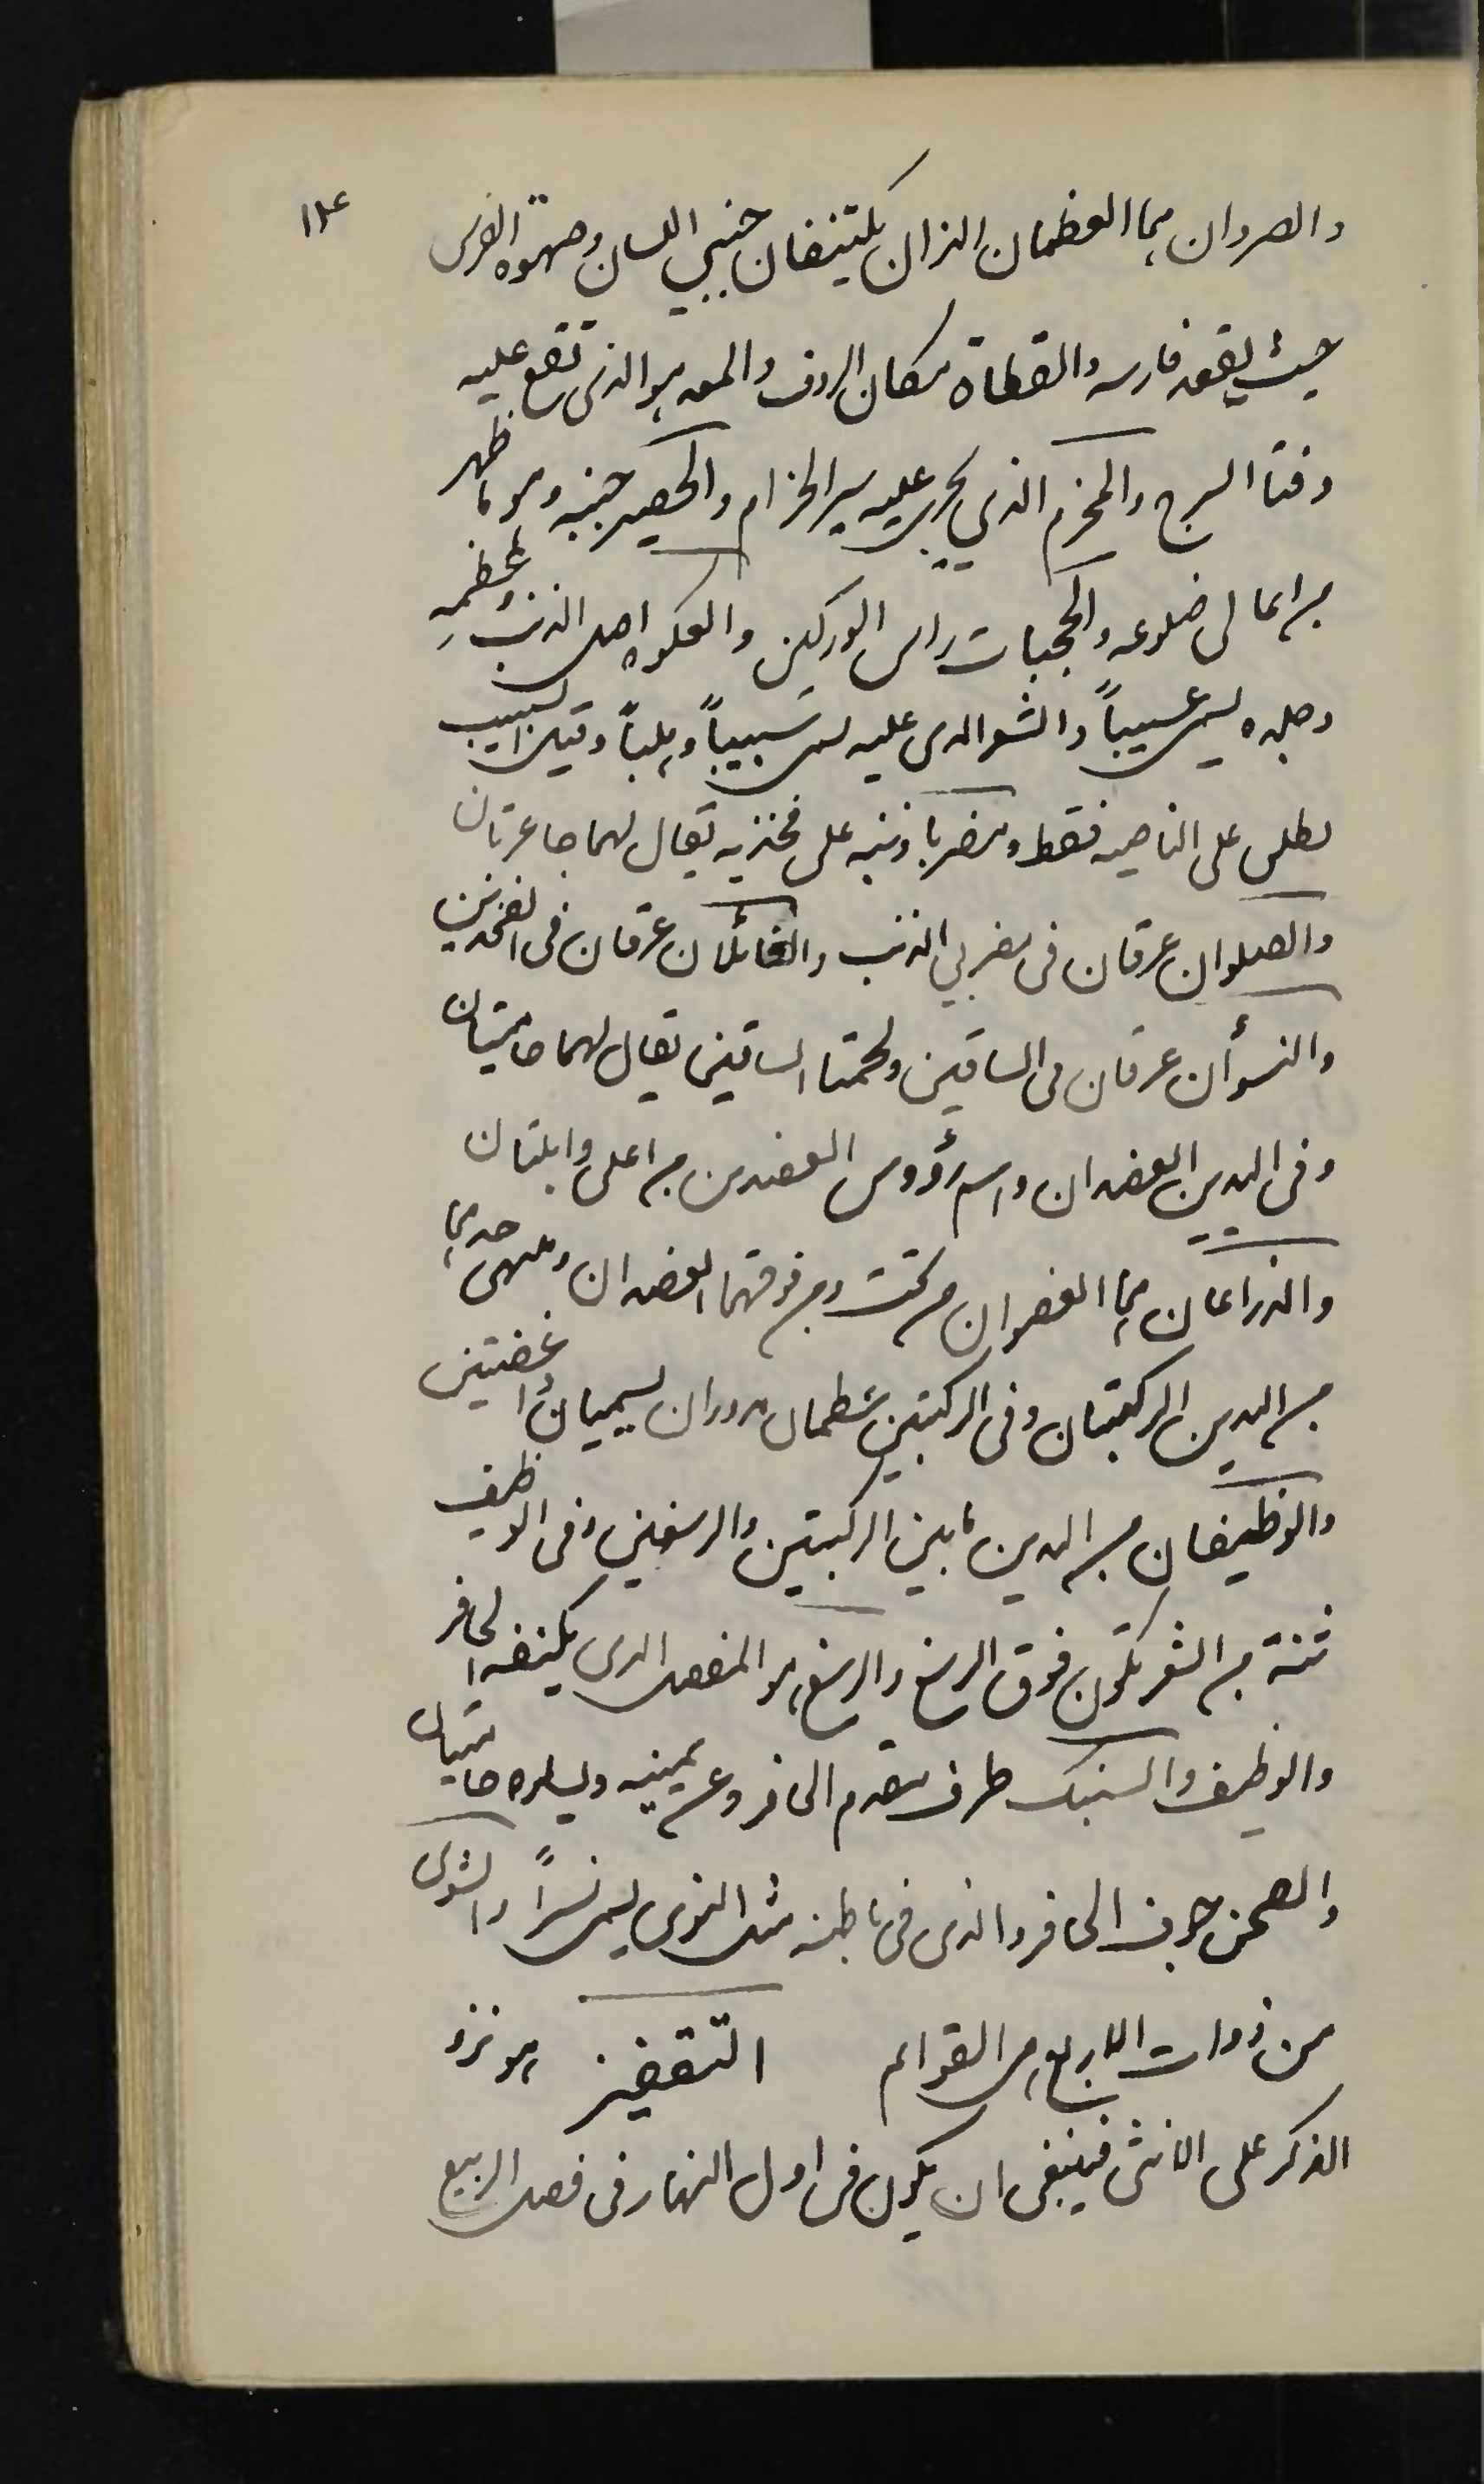 ١٢٤
والصردان هما العظمان الذان يكتنفان جنبي اللسان وصهوة الفرس
حيث يقعد فارسه والقطاة مكان الردف والمعد هو الذى تقع عليه
دفتا السرج والمحزم الذي يجرى عليه سير الحزام والحصير جنبه وهو ما ظهر
من اعالى ضلوعه والحجبات راس الوركين والعكوه اصل الذنب وعظمه
وجلده يسمى عسيباً والشعر الدى عليه يسمى سَبيباً وهلباً وقيل السبيب
يطلق على الناصيه فقط ومضربا ذنبه على فخذيه يقال لهما جاعرتان
والصلوان عرقان فى مضربي الذنب والفائلان عرقان فى الفخذين
والنسوأن عرقان فى الساقين ولحمتا الساقين يقال لهما حامتيان
وفى اليدين العضدان واسم رؤوس العضدين من اعلى وابلتان
والذراعان هما من تحت ومن فوقهما العضدان
من اليدين الركبتان وفى الركبتين عظمان مدوران يسميان
والوظيفان من اليدين ما بين الركبتين والرسغين وفى الوظيف
ثنة من الشعر تكون فوق الرسغ والرسغ هو المفصل الدى يكتنفه الحافر
والوظيف والسنبك طرف مقدم الحافر وعن يمينه ويساره حاميتان
والصحن جوف الحافر والذى فى باطنه مثل النوى يسمى نسراً والشوى
من ذوات الاربع هى القوائم التقفيز هو نزو
الذكر على الانثى فينبغى ان يكون فى اول النهار فى فصل الربيع